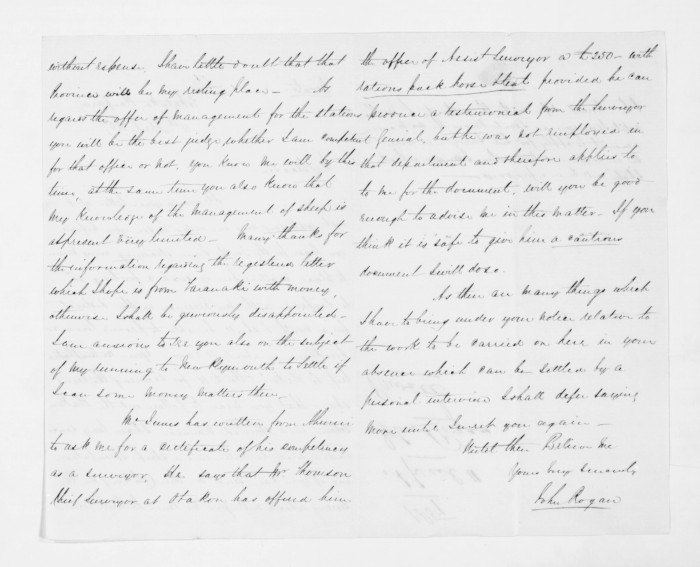 without expense. I have little doubt that that
Province will be my resting place — As
regards the offer of management for the stations
you will be the best judge whether I am competent
for that office or not, you know me well by this
time, at the same time you also know that
my knowledge of the management of sheep is
at present very limited — Many thanks for
the information regarding the registered letter
which I hope is from Taranaki with money,
otherwise I shall be grievously disappointed —
I am anxious to see you also on the subject
of my running to New Plymouth to settle if
I can some money matters there.
Mr. Innes has written from Ahuriri
to ask me for a certificate of his competency
as a surveyor, He says that Mr Thomson
Chief Surveyor at Otakou has offered him
the office of Assist Surveyor a £250 — with
rations pack horse & tent provided he can
produce a testimonial from the Surveyor
General, but he was not employed in
that department and therefore applies to
to me for the document, will you be good
enough to advise me in this matter — If you
think it is safe to give him a cautious
document I will do so.
As there are many things which
I have to bring under your notice relation to
the work to be carried on here in your
absence which can be settled by a
personal interview I shall defer saying
more until I meet you again —
Until then Believe me
Yours very sincerely
John Rogan